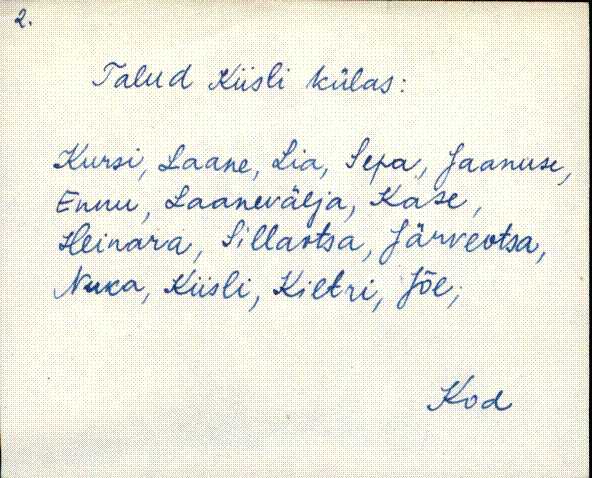 2.
Talud Kiisli külas:
Kursi, Laane, Lia, Sepa, Jaanuse,
Ennu, Laanevälja, Kase,
Heinara, Sillaotsa, Järveotsa,
Nuka, Kiisli, Kiltri, Jõe,
Kod